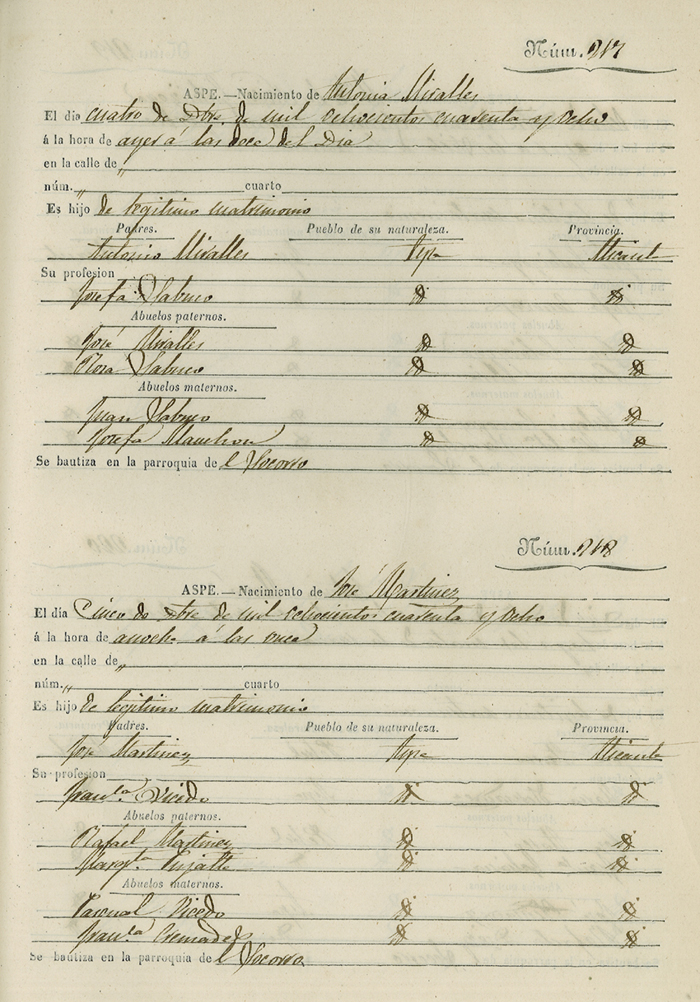 Núm. 217
ASPE.—Nacimiento de Antonia Miralles
El dia cuatro de Dbre. de mil ochocientos cuarenta y ocho
á la hora de ayer á las doce del Dia
en la calle de „
núm. „ cuarto
Es hijo de legitimo matrimonio
Padres. Pueblo de su naturaleza. Provincia.
Antonio Miralles Aspe Alicante
Su profesion
Josefa Sabuco id id
Abuelos paternos.
José Miralles id id
Rosa Sabuco id id
Abuelos maternos.
Juan Sabuco id id
Josefa Manchon id id
Se bautiza en la parroquia de l Socorro
Núm. 218
ASPE.—Nacimiento de José Martinez
El dia Cinco de Dbre de mil ochocientos cuarenta y ocho
á la hora de anoche á las once
en la calle de „
núm. „ cuarto
Es hijo de legitimo matrimonio
Padres. Pueblo de su naturaleza. Provincia.
José Martinez Aspe Alicante
Su profesion
Fran.ca Vicedo id id
Abuelos paternos.
Rafael Martinez id id
Marg.ta id id
Abuelos maternos.
Pascual Vicedo id id
Fran.ca Cremades id id
Se bautiza en la parroquia de l Socorro